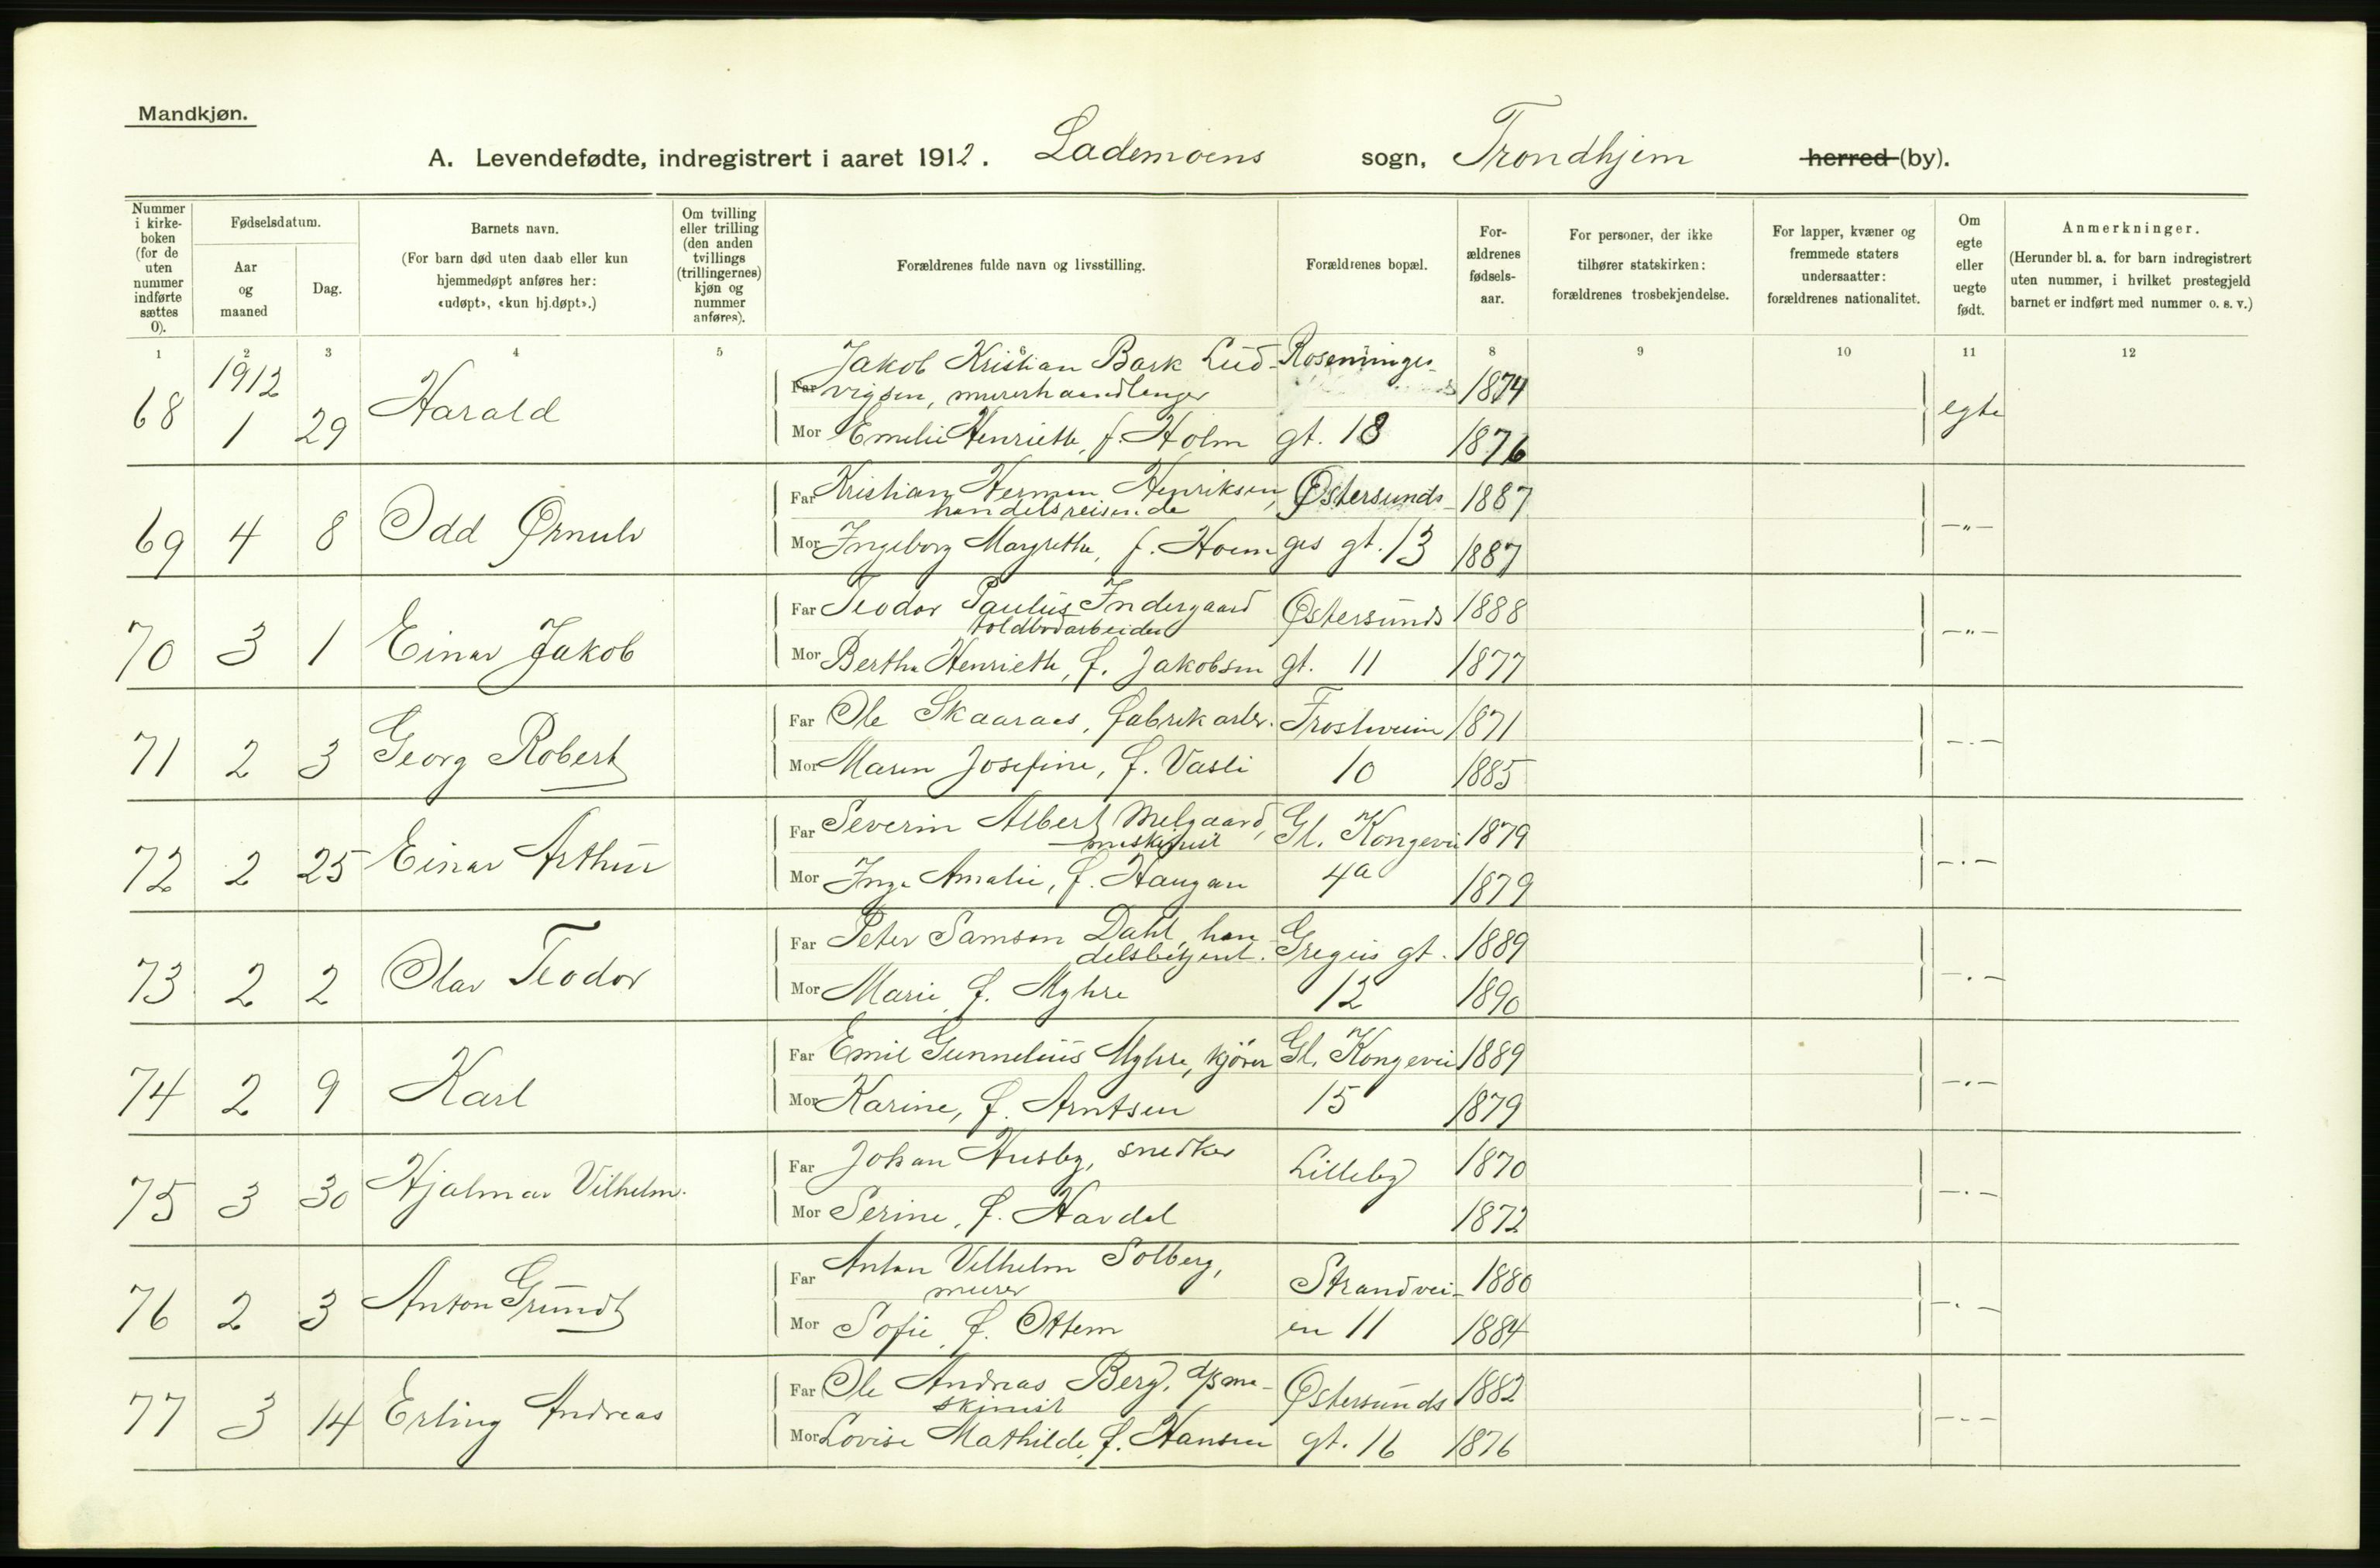 Mandkjøn.
A. Levendefødte, indregistrert i aaret 1912. Lademoens sogn, Trondhjem herred (by).
Nummer i kirke-boken (for de uten nummer indførte sættes 0).
Fødselsdatum.
Aar og maaned
Dag.
Barnets navn.
(For barn død uten daab eller kun hjemmedøpt anføres her: «udøpt», «kun hj.døpt».)
Om tvilling eller trilling (den anden tvillings (trillingernes) kjøn og nummer anføres).
Forældrenes fulde navn og livsstilling.
Forældrenes bopæl.
For-ældrenes fødsels-aar.
For personer, der ikke tilhører statskirken: forældrenes trosbekjendelse.
For lapper, kvæner og fremmede staters undersaatter: forældrenes nationalitet.
Om egte eller uegte født.
Anmerkninger.
(Herunder bl. a. for barn indregistrert uten nummer, i hvilket prestegjeld barnet er indført med nummer o. s. v.)
1 2 3 4 5 6 8 9 10 11 12
1912
68 1 29 Harald
Far Jakob Kristian Bark Lud-
vigsen, murerhaandlanger
Rosenunges- 1874
Mor Emelie Henriette, f. Holm gt. 18 1876
egte
69 4 8 Odd Ørnulv
Far Kristian Herman Henriksen, Østersunds- 1887
handelsreisende
Mor Ingeborg Margrethe, f. Hoem ges gt. 13 1887
—"—
70 3 1 Einar Jakob
Far Teodor Paulus Indergaard Østersunds 1888
toldbodarbeider
Mor Bertha Henriette, f. Jakobsen gt. 11 1877
—"—
71 2 3 Georg Robert
Far Ole Skaaraas, fabrikarb. Frostveien 1871
Mor Maren Josefine, f. Vasli 10 1885
—.—
72 2 25 Einar Arthur
Far Severin Albert Melgaard, Gl. Kongevei 1879
maskinist
Mor Inga Amalie, f. Haugan 4a 1879
—.—
73 2 2 Olav Teodor
Far Peter Samson Dahl, han-
delsbetjent. Gregus gt. 1889
Mor Marie, f. Myhre 12 1890
—.—
74 2 9 Karl
Far Emil Gunnelius Myhre, kjører Gl. Kongevei 1889
Mor Karine, f. Arntsen 15 1879
—.—
75 3 30 Hjalmar Vilhelm.
Far Johan Husby, snedker Lilleby 1870
Mor Serine, f. Havdal 1872
—.—
76 2 3 Anton Grundt
Far Anton Vilhelm Solberg, Strandvei- 1880
murer
Mor Sofie, f. Ottem en 11 1884
—.—
77 3 14 Erling Andreas
Far Ole Andreas Berg, d/s ma-
skinist Østersunds 1882
Mor Lovise Mathilde, f. Hansen gt. 16 1876
—-—